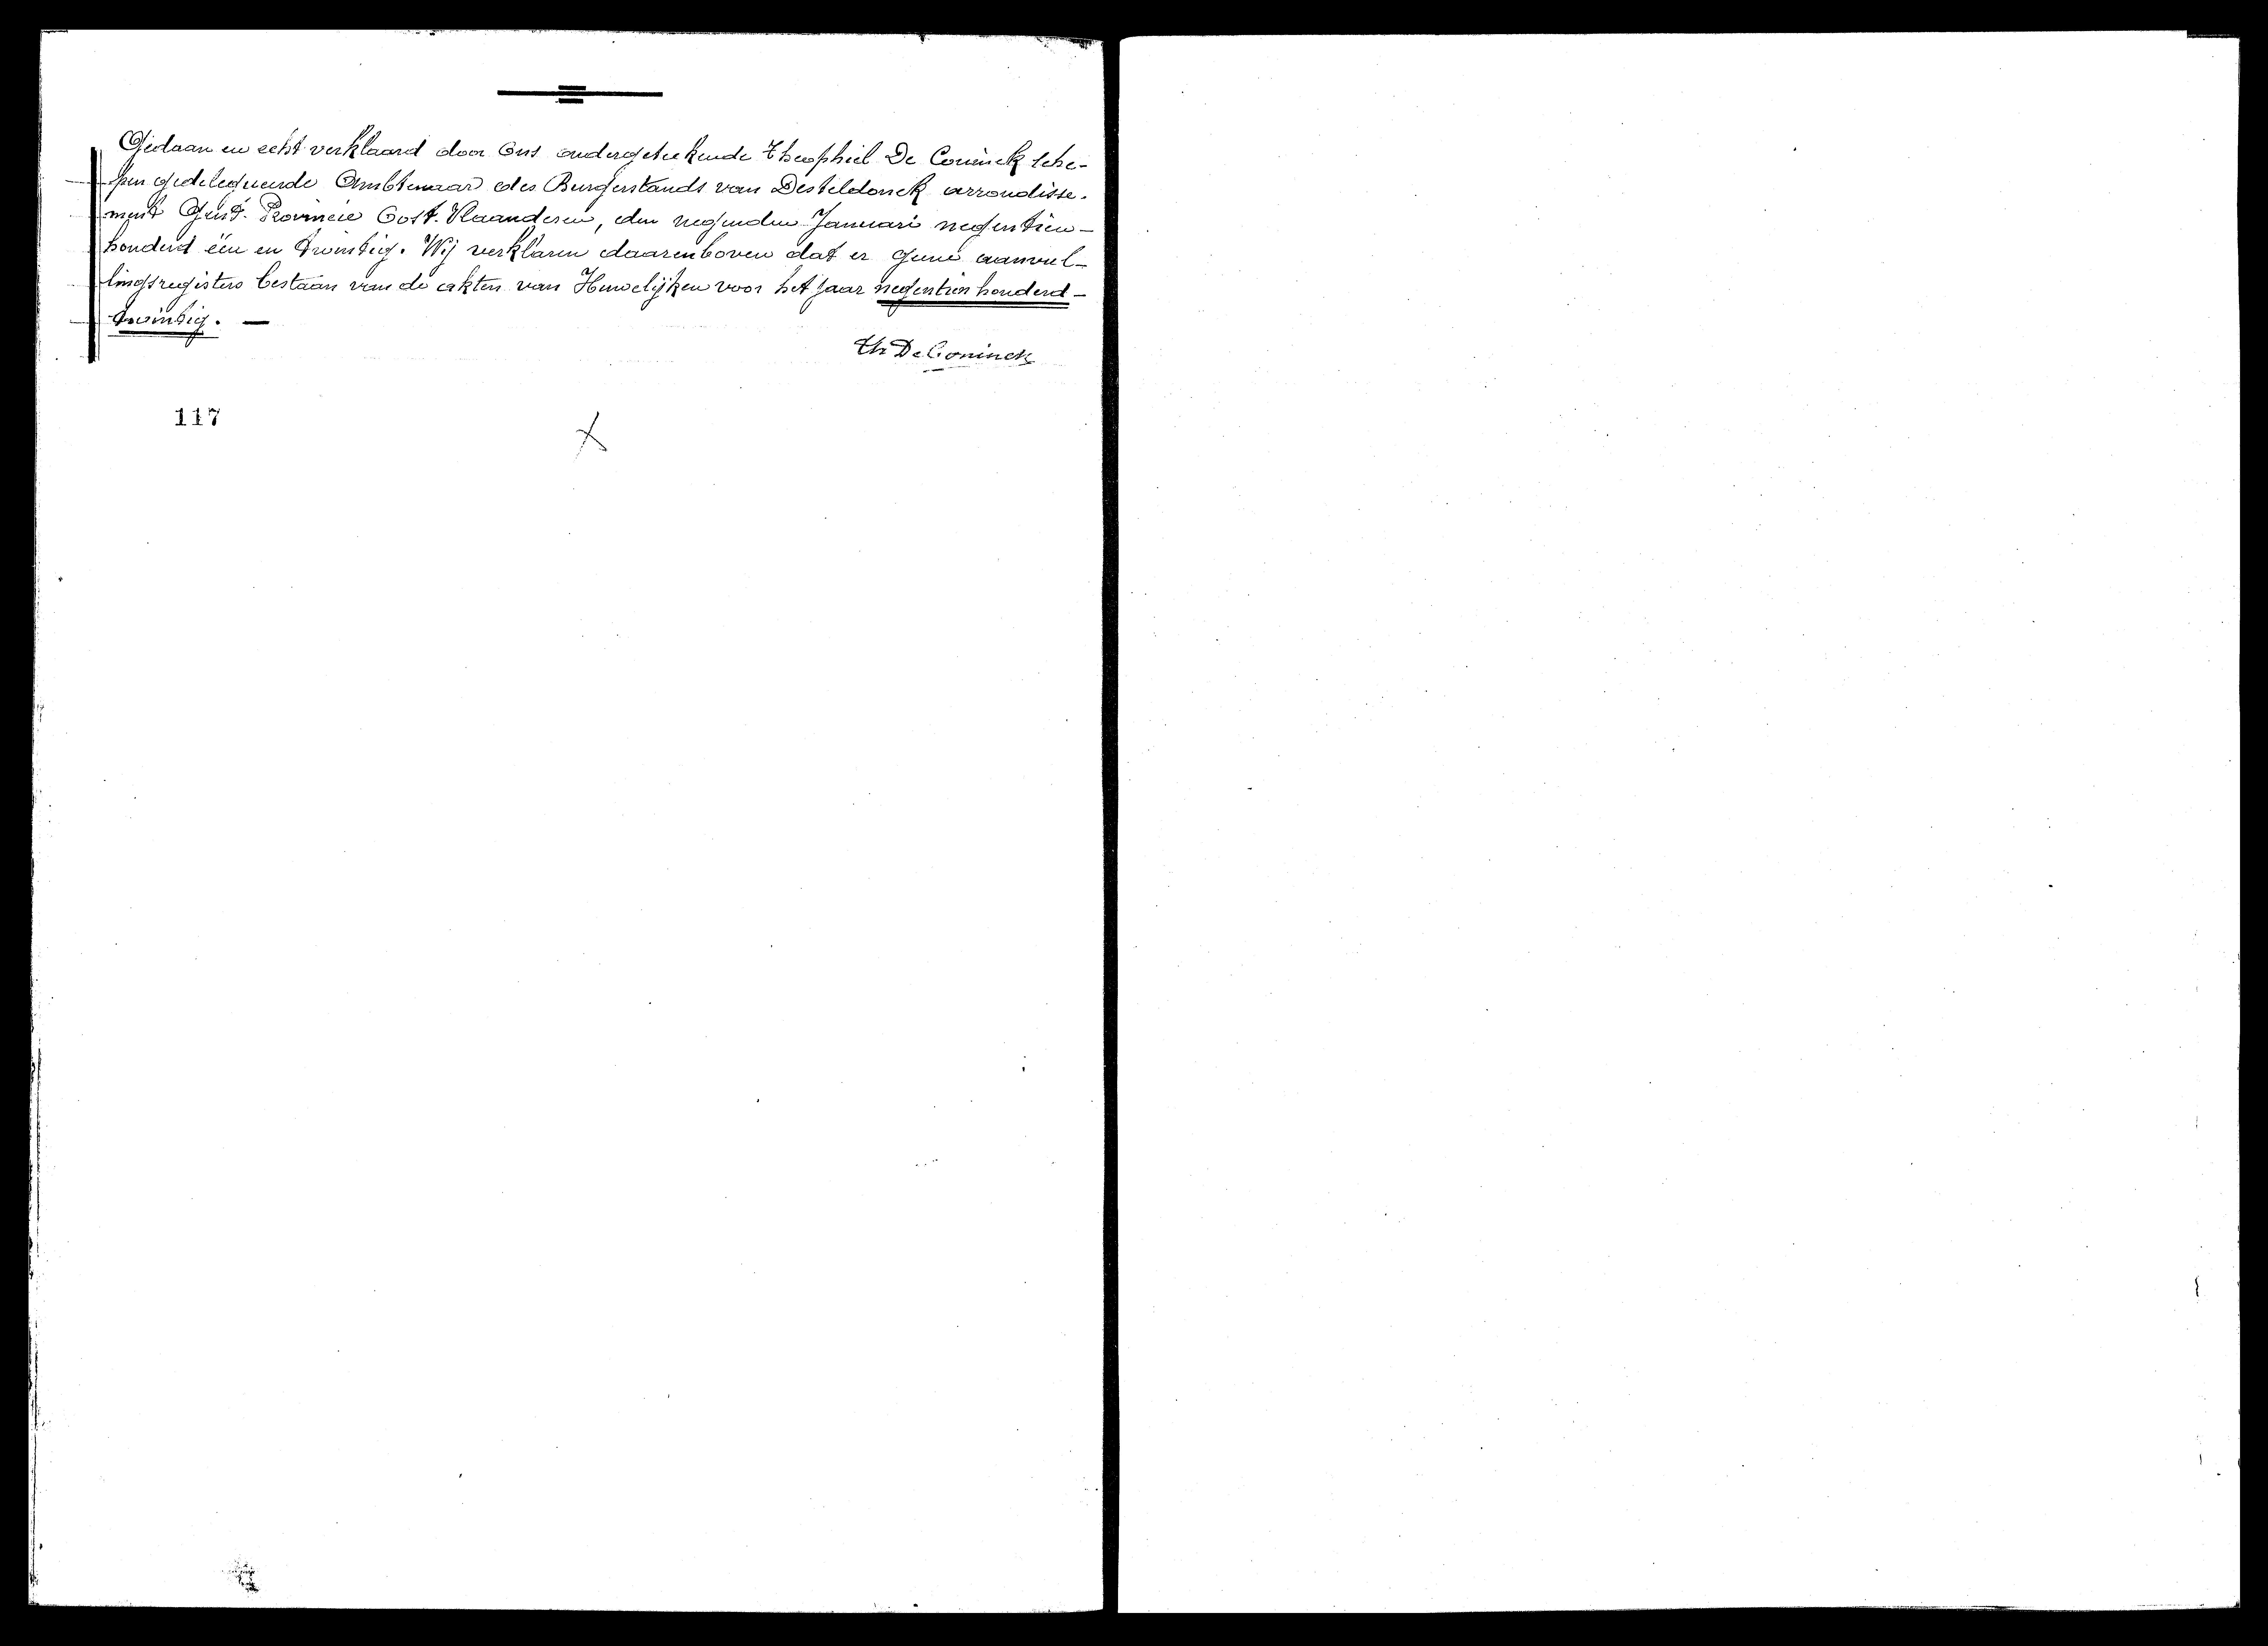 Gedaan en echt verklaard door Ons ondergeteekende Theophiel De Coninck sche-
pen gedelegueerde Ambtenaar des Burgerstands van Desteldonck arrondisse-
ment Gent. Provincie Oost-Vlaanderen, den negenden Januari negentien-
honderd één en twintig. Wij verklaren daarenboven dat er geene aanvul-
lingsregisters bestaan van de akten van Huwelijken voor het jaar negentien honderd-
twintig. —
Th De Coninck
117